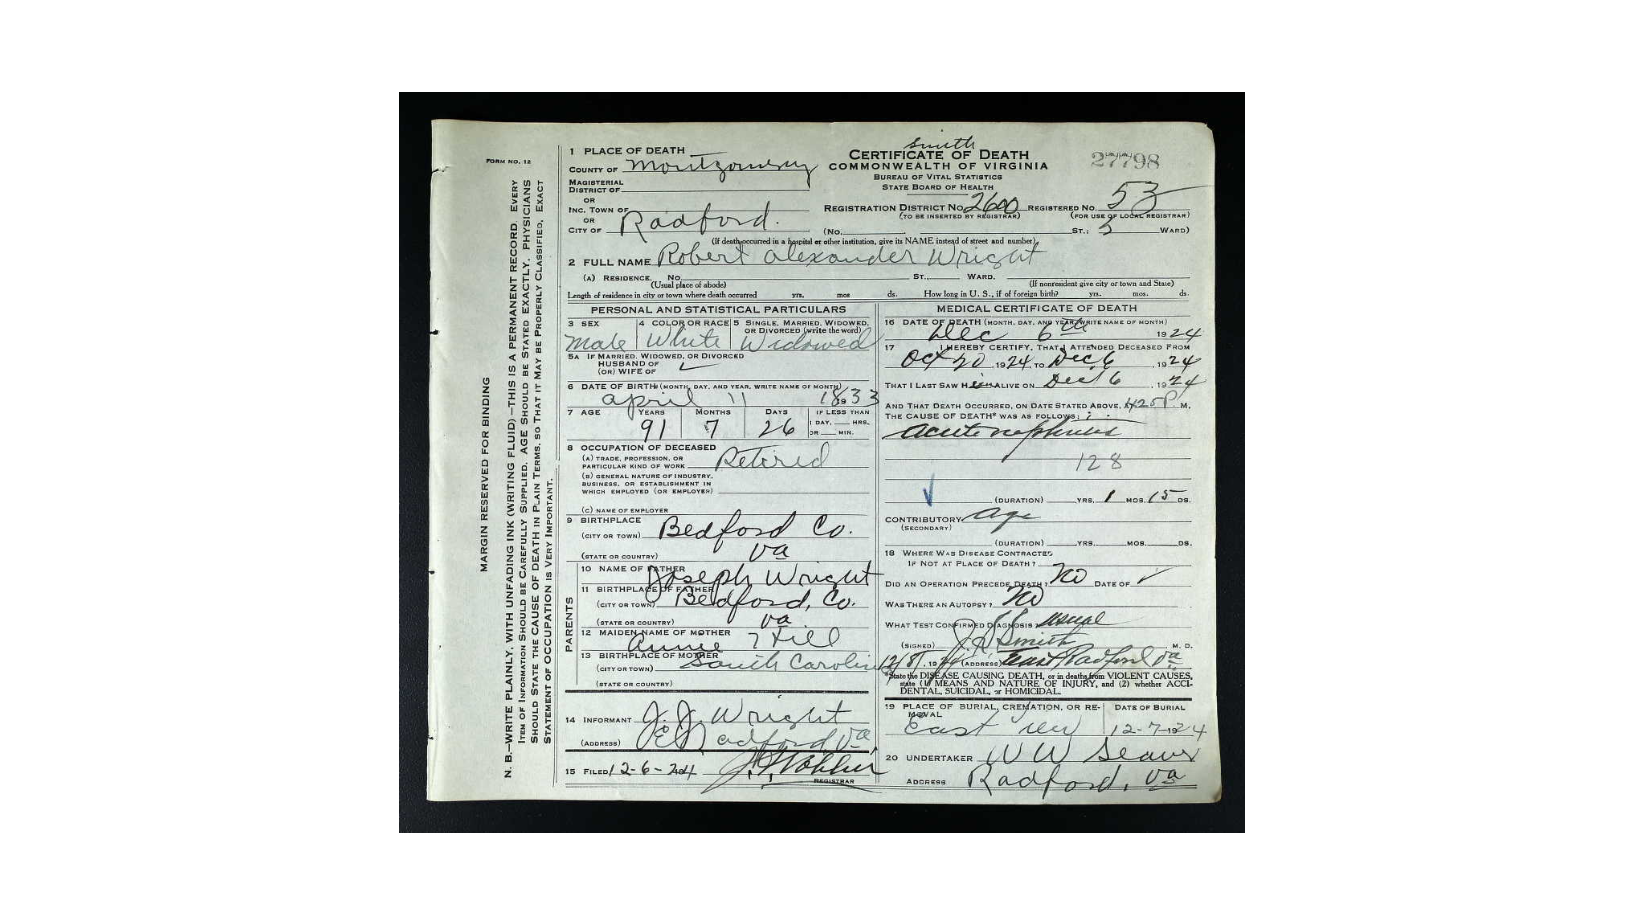 FORM NO. 12
MARGIN RESERVED FOR BINDING
N. B.—WRITE PLAINLY, WITH UNFADING INK (WRITING FLUID)—THIS IS A PERMANENT RECORD. EVERY
ITEM OF INFORMATION SHOULD BE CAREFULLY SUPPLIED. AGE SHOULD BE STATED EXACTLY. PHYSICIANS
SHOULD STATE THE CAUSE OF DEATH IN PLAIN TERMS, SO THAT IT MAY BE PROPERLY CLASSIFIED. EXACT
STATEMENT OF OCCUPATION IS VERY IMPORTANT.
Smith
CERTIFICATE OF DEATH
COMMONWEALTH OF VIRGINIA
BUREAU OF VITAL STATISTICS
STATE BOARD OF HEALTH
27798
1 PLACE OF DEATH
COUNTY OF Montgomery
MAGISTERIAL
DISTRICT OF
OR
INC. TOWN OF
OR
CITY OF Radford.
REGISTRATION DISTRICT NO. 2600 REGISTERED NO. 53
(TO BE INSERTED BY REGISTRAR) (FOR USE OF LOCAL REGISTRAR)
(No. ST.; 3 WARD)
(If death occurred in a hospital or other institution, give its NAME instead of street and number)
2 FULL NAME Robert Alexander Wright
(A) RESIDENCE. No. ST. WARD.
(Usual place of abode) (If nonresident give city or town and State)
Length of residence in city or town where death occurred yrs. mos ds. How long in U. S., if of foreign birth? yrs. mos. ds.
PERSONAL AND STATISTICAL PARTICULARS
3 SEX 4 COLOR OR RACE 5 SINGLE, MARRIED, WIDOWED, OR DIVORCED (write the word)
Male White Widowed
5A IF MARRIED, WIDOWED, OR DIVORCED
HUSBAND OF
(OR) WIFE OF
6 DATE OF BIRTH (MONTH, DAY, AND YEAR, WRITE NAME OF MONTH)
April 11 1833
7 AGE YEARS MONTHS DAYS IF LESS THAN
1 DAY, HRS.
OR MIN.
91 7 26
8 OCCUPATION OF DECEASED
(A) TRADE, PROFESSION, OR
PARTICULAR KIND OF WORK Retired
(B) GENERAL NATURE OF INDUSTRY,
BUSINESS, OR ESTABLISHMENT IN
WHICH EMPLOYED (OR EMPLOYER)
(C) NAME OF EMPLOYER
9 BIRTHPLACE
(CITY OR TOWN) Bedford Co.
(STATE OR COUNTRY) Va
PARENTS
10 NAME OF FATHER Joseph Wright
11 BIRTHPLACE OF FATHER
(CITY OR TOWN) Bedford, Co.
(STATE OR COUNTRY) Va
12 MAIDEN NAME OF MOTHER
Annie Hill
13 BIRTHPLACE OF MOTHER
(CITY OR TOWN) South Carolina
(STATE OR COUNTRY)
14 INFORMANT J. J. Wright
(ADDRESS) E Radford Va
15 FILED 12-6-24
REGISTRAR
MEDICAL CERTIFICATE OF DEATH
16 DATE OF DEATH (MONTH, DAY, AND YEAR, WRITE NAME OF MONTH)
Dec 6th 1924
17 I HEREBY CERTIFY, THAT I ATTENDED DECEASED FROM
Oct 20, 1924, TO Dec 6, 1924
THAT I LAST SAW Him ALIVE ON Dec 6, 1924
AND THAT DEATH OCCURRED, ON DATE STATED ABOVE, 425 P. M.
THE CAUSE OF DEATH* WAS AS FOLLOWS:
Acute nephritis
128
(DURATION) YRS. 1 MOS. 15 DS.
CONTRIBUTORY Age
(SECONDARY)
(DURATION) YRS. MOS. DS.
18 WHERE WAS DISEASE CONTRACTED
IF NOT AT PLACE OF DEATH?
DID AN OPERATION PRECEDE DEATH? No DATE OF
WAS THERE AN AUTOPSY? No
WHAT TEST CONFIRMED DIAGNOSIS usual
(SIGNED) Smith M. D.
12/8, 19 (ADDRESS) East Radford Va
*State the DISEASE CAUSING DEATH, or in deaths from VIOLENT CAUSES,
state (1) MEANS AND NATURE OF INJURY, and (2) whether ACCI-
DENTAL, SUICIDAL, or HOMICIDAL.
19 PLACE OF BURIAL, CREMATION, OR RE-
MOVAL DATE OF BURIAL
East View 12-7-24
20 UNDERTAKER W W
ADDRESS Radford, Va